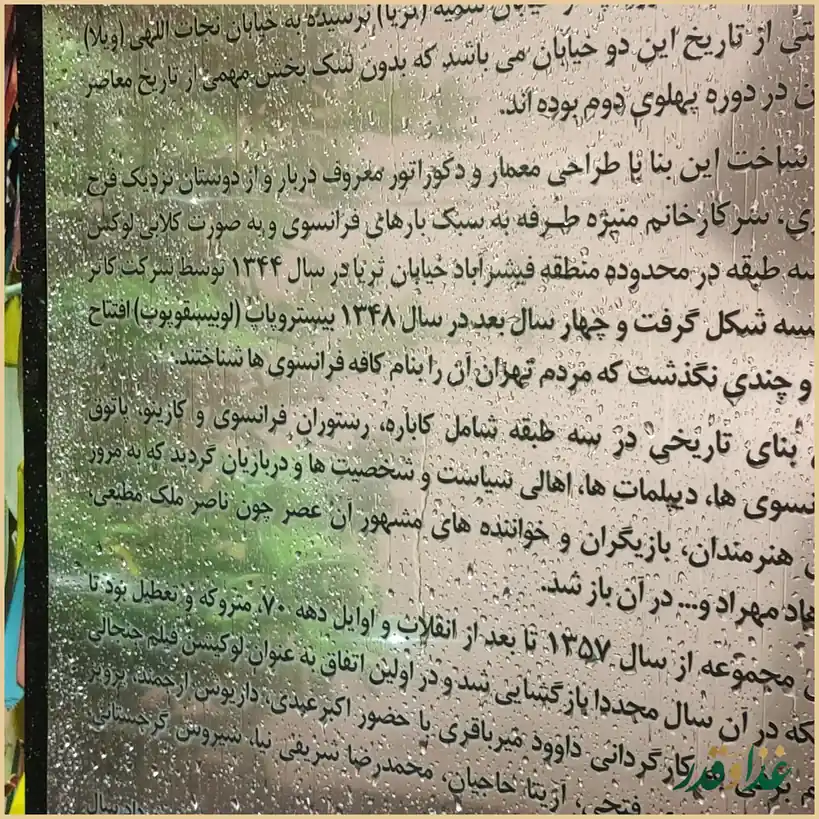 خیابان سمیه (ثریا) نرسیده به خیابان نجات اللهی (ویلا)
از تاریخ این دو خیابان می باشد که بدون شک بخش مهمی از تاریخ معاصر
در دوره پهلوی دوم بوده اند.
ساخت این بنا با طراحی معمار و دکوراتور معروف دربار و از دوستان نزدیک فرح
سرکارخانم منیژه طرفه به سبک بارهای فرانسوی و به صورت کلابی لوکس
سه طبقه در محدوده منطقه فیشرآباد خیابان ثریا در سال ۱۳۴۴ توسط شرکت کانر
شکل گرفت و چهار سال بعد در سال ۱۳۴۸ بیستروپاپ (لوبیسقوپوپ) افتتاح
و چندی نگذشت که مردم تهران آن را بنام کافه فرانسوی ها شناختند.
بنای تاریخی در سه طبقه شامل کاباره، رستوران فرانسوی و کازینو، پاتوق
دیپلمات ها، اهالی سیاست و شخصیت ها و درباریان گردید که به مرور
هنرمندان، بازیگران و خواننده های مشهور آن عصر چون ناصر ملک مطیعی،
مهراد و... در آن باز شد.
مجموعه از سال ۱۳۵۷ تا بعد از انقلاب و اوایل دهه ۷۰، متروکه و تعطیل بود تا
در آن سال مجددا بازگشایی شد و در اولین اتفاق به عنوان لوکیشن فیلم جنجالی
کارگردانی داوود میرباقری با حضور اکبرعبدی، داریوش ارجمند، پرویز
فتحی، آزیتا حاجیان، محمدرضا شریفی نیا، سیروس گرجستانی،
سال
غذا و قدر